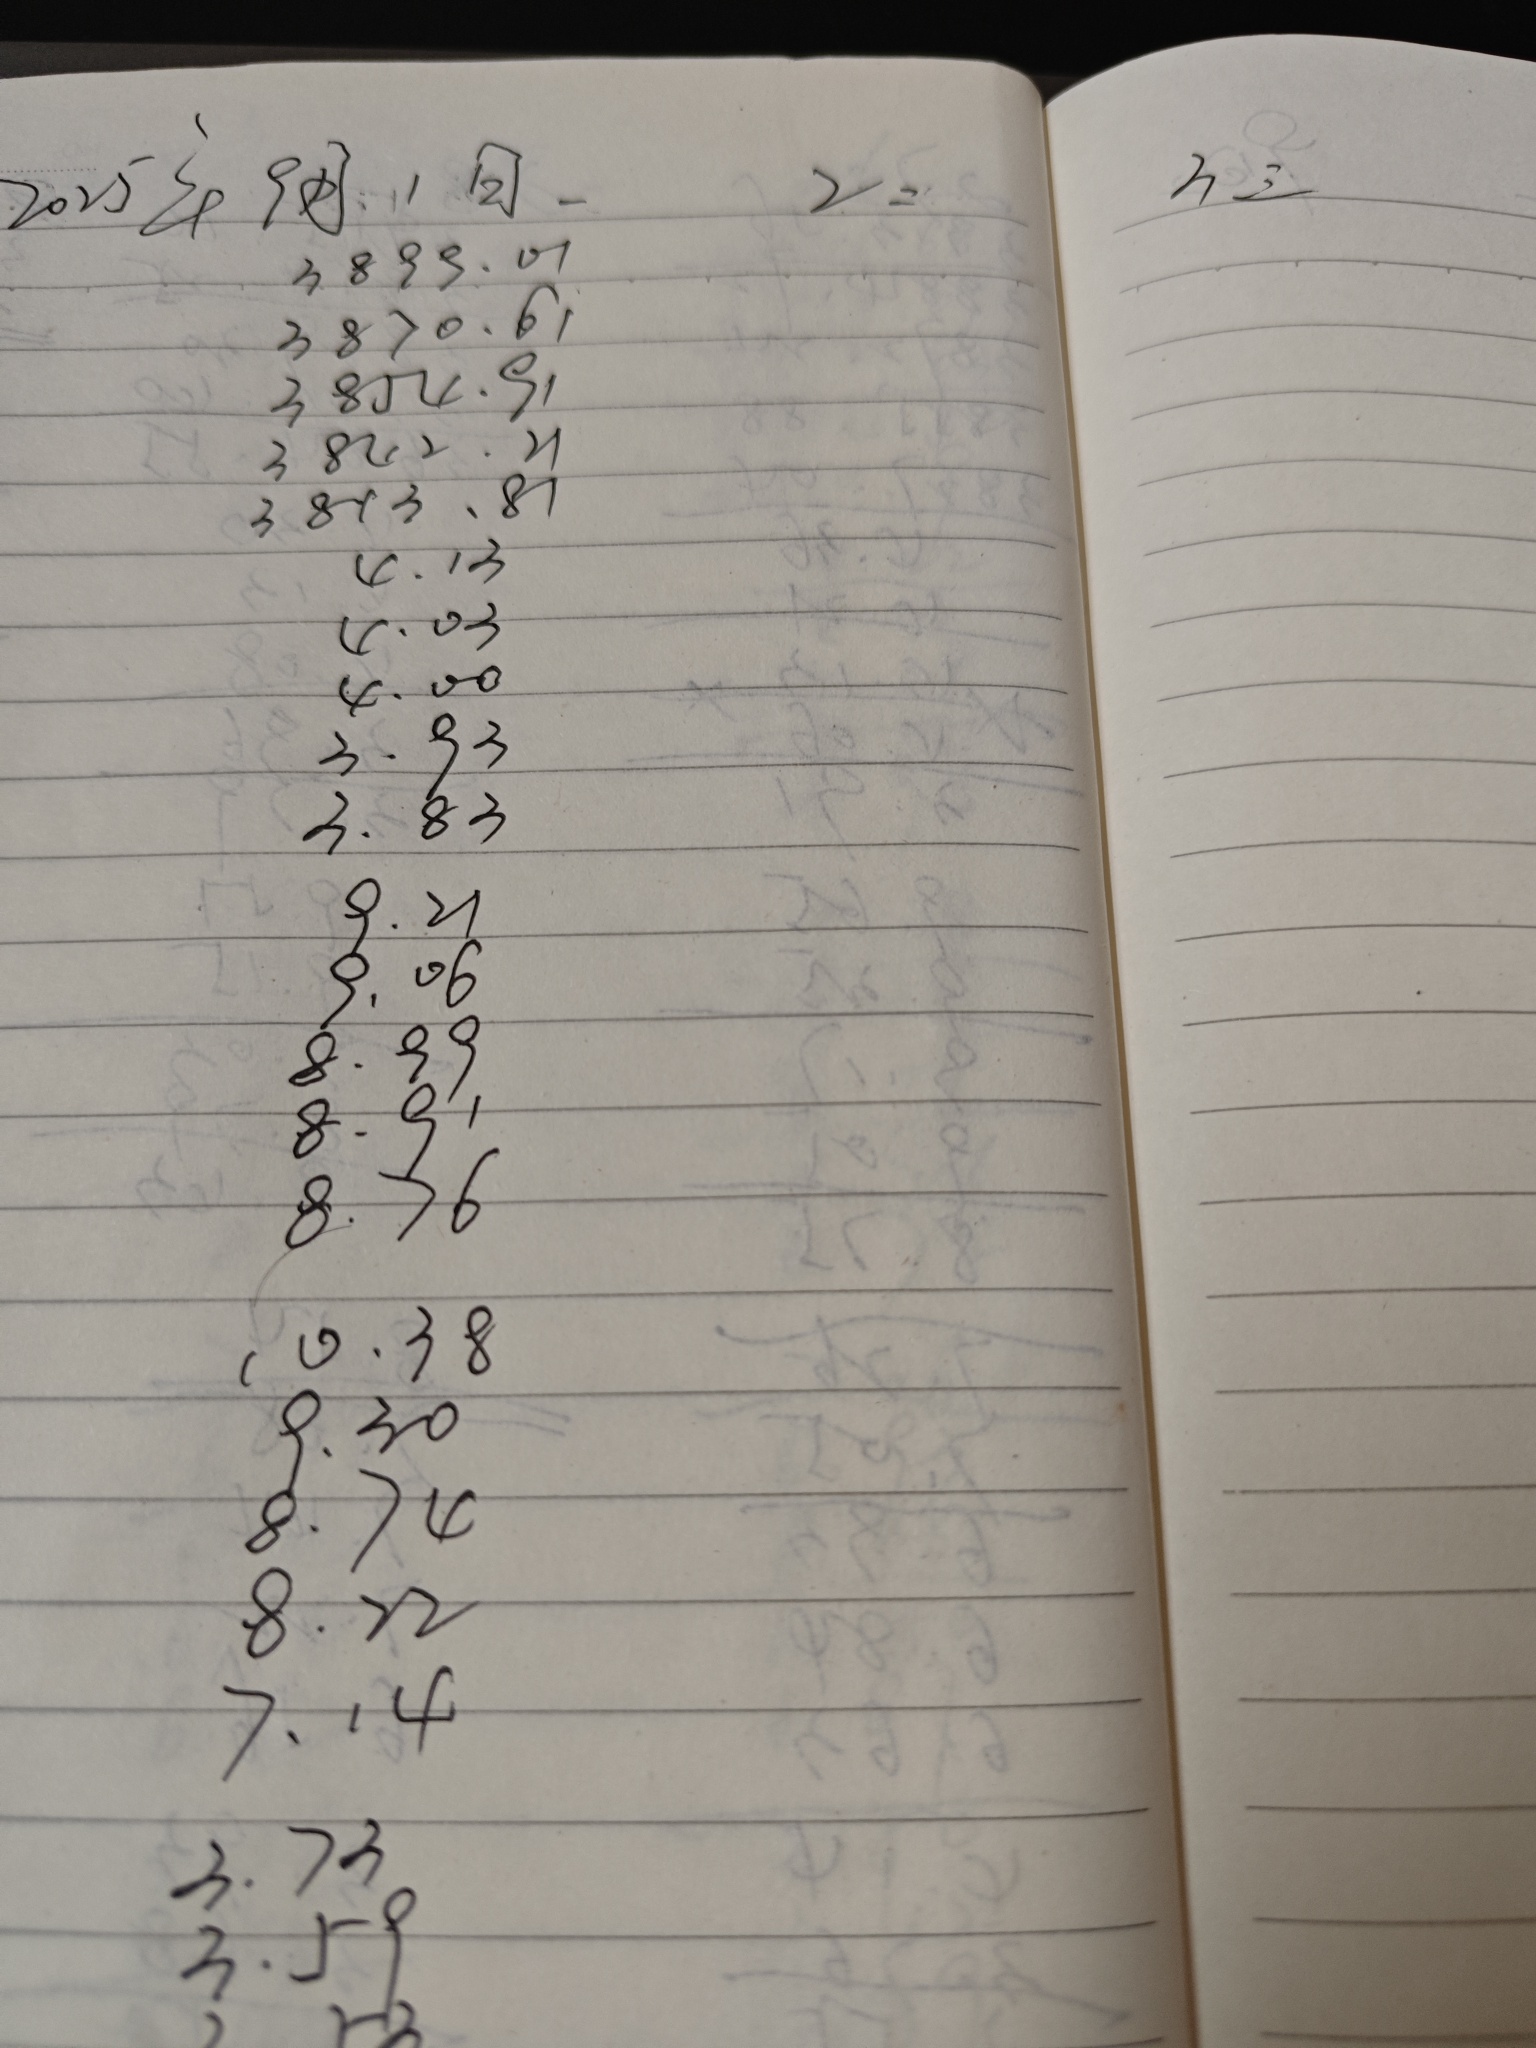 2025年9月1日一 2二 3三
3899.01
3870.61
3854.91
3842.21
3843.81
4.13
4.03
4.00
3.93
3.83
9.21
9.06
8.99
8.91
8.76
10.38
9.30
8.74
8.22
7.14
3.73
3.59